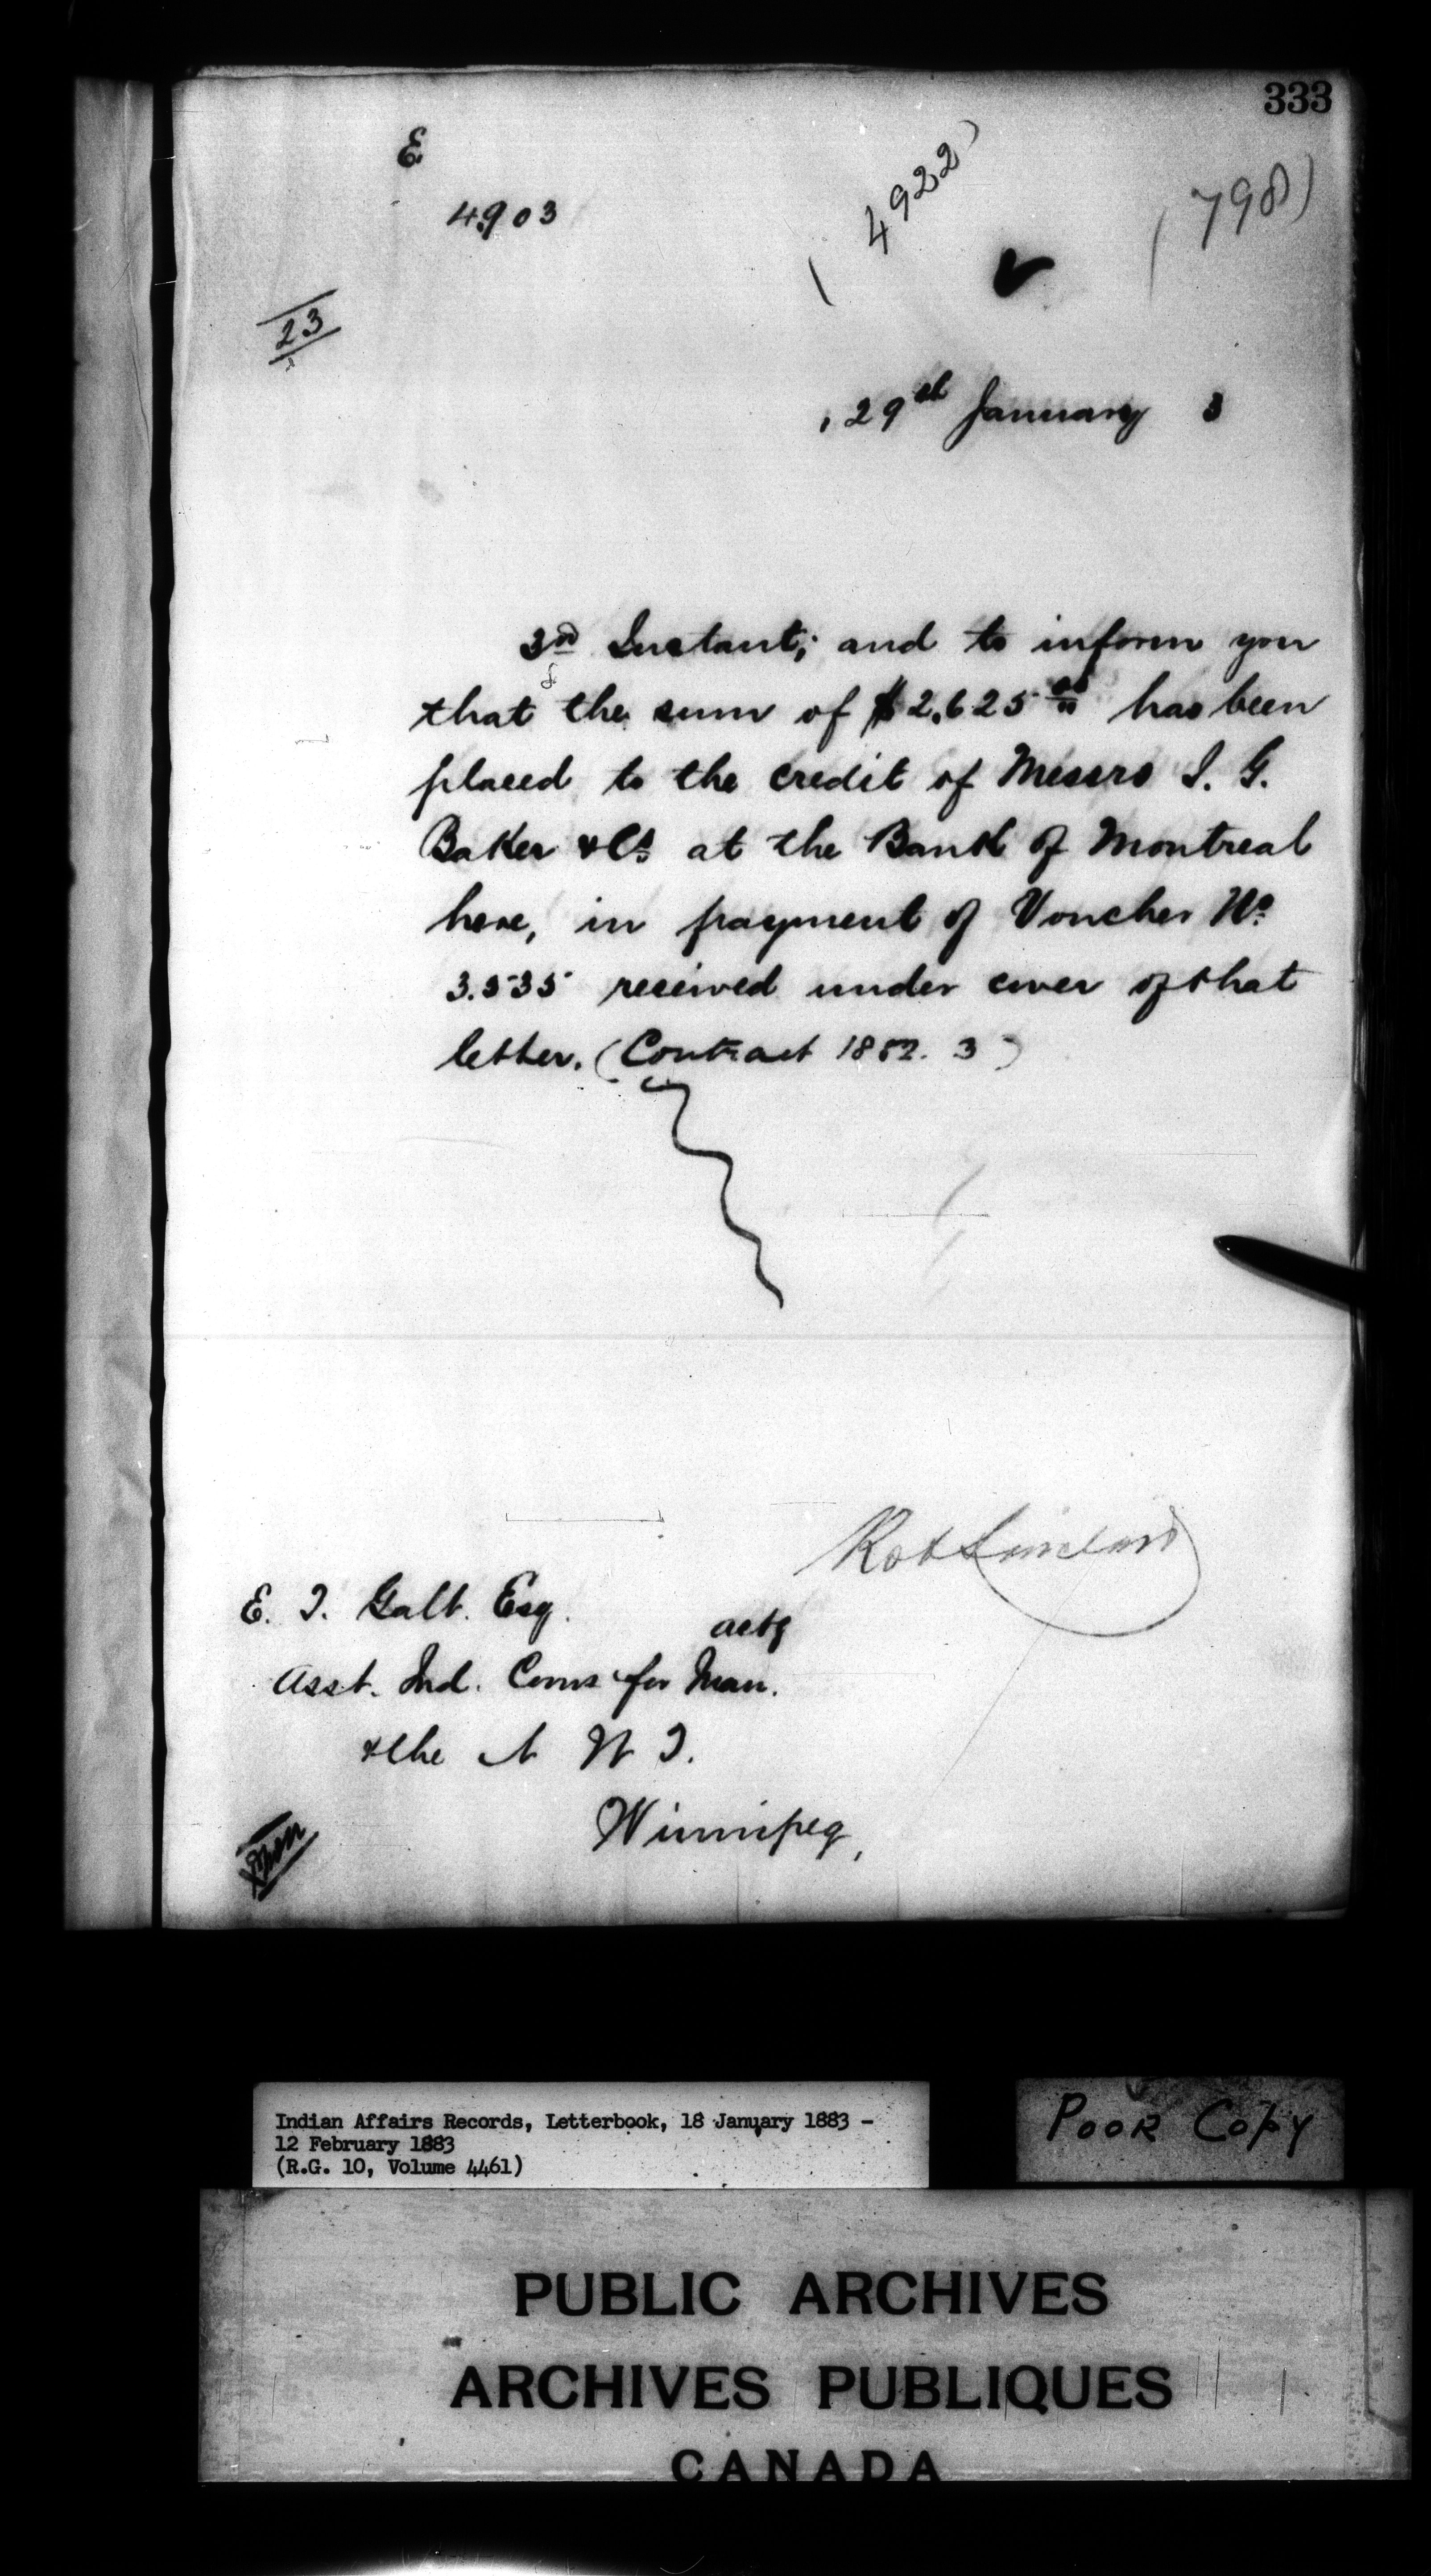 333
E
4903
(4922)
(798)
23
29th January 3
3rd Instant; and to inform you
that the sum of $2,625 00 has been
placed to the credit of Messrs I. G.
Baker & Co at the Bank of Montreal
here, in payment of Voucher No
3.535 received under cover of that
letter. (Contract 1882. 3)
Rob Sinclair
E. T. Galt. Esq.
actg
Asst. Ind. Coms for Man.
& the N W T.
Winnipeg,
Indian Affairs Records, Letterbook, 18 January 1883 -
12 February 1883
(R.G. 10, Volume 4461)
POOR COPY
PUBLIC ARCHIVES
ARCHIVES PUBLIQUES
CANADA